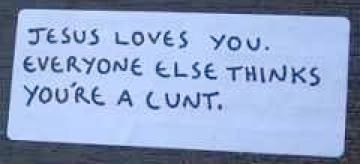 JESUS LOVES YOU.
EVERYONE ELSE THINKS
YOU'RE A CUNT.